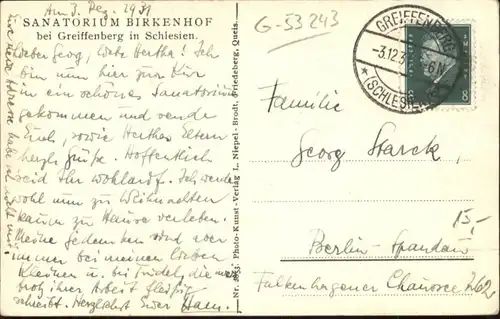 Am 3. Dez. 1931
SANATORIUM BIRKENHOF
bei Greiffenberg in Schlesien.
Lieber Georg, liebe Hertha! Ich
bin nun hier zur Kur
in ein schönes Sanatorium
gekommen und sende
Euch, sowie Herthas Eltern
herzl. Grüße. Hoffentlich
seid Ihr wohlauf. Ich werde
wohl nun zu Weihnachten
kaum zu Hause verleben.
Meine Gedanken sind aber
immer bei meinen lieben
Kleinen u. bei Friedel, die
trotz ihrer Arbeit fleißig
schreibt. Herzlichst Euer Hans.
Eure neue Adresse habe ich nicht mit.
Nr. 3633 Photo-Kunst-Verlag L. Niepel-Brodt, Friedeberg, Queis.
G-53243
GREIFFENBERG
-3.12.3
(SCHLESIEN)
8 8
Familie
Georg Starck,
15,-
Berlin-Spandau
Falkenhagener Chaussee